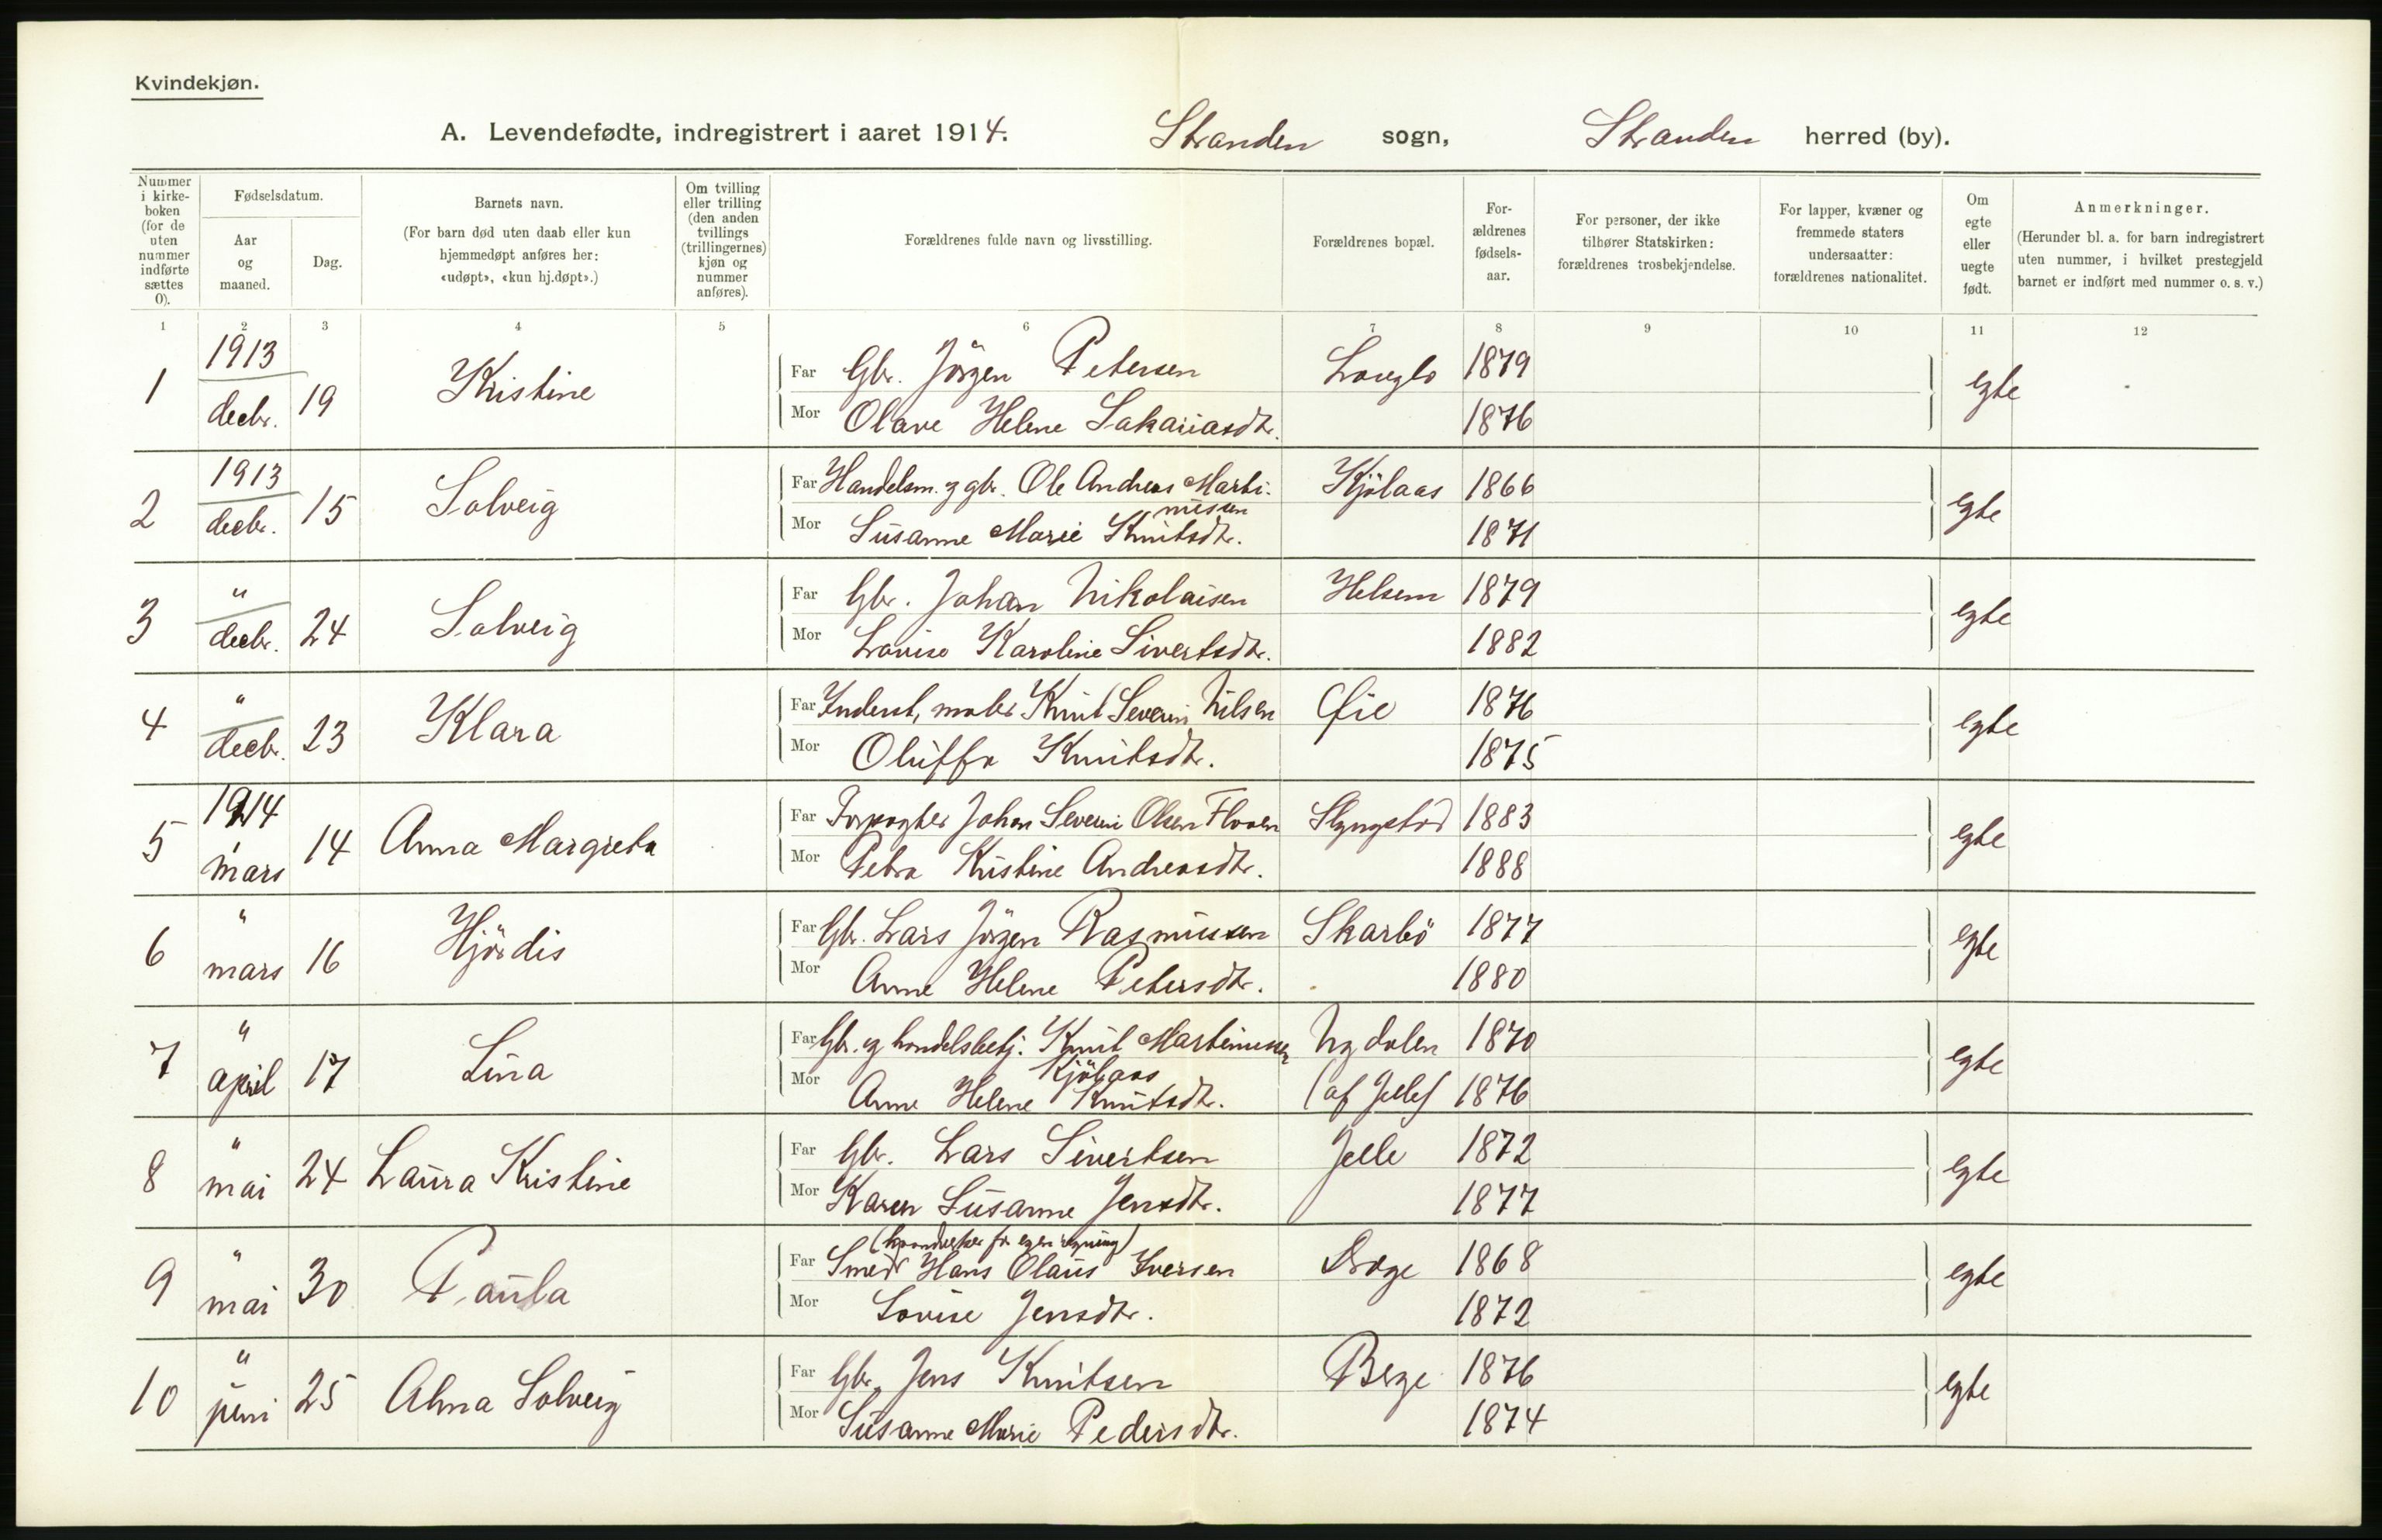 Kvindekjøn.
A. Levendefødte, indregistrert i aaret 1914. Stranden sogn, Stranden herred (by).
Nummer i kirke-boken (for de uten nummer indførte sættes 0).
Fødselsdatum.
Aar og maaned.
Dag.
Barnets navn.
(For barn død uten daab eller kun hjemmedøpt anføres her: «udøpt», «kun hj.døpt».)
Om tvilling eller trilling (den anden tvillings (trillingernes) kjøn og nummer anføres).
Forældrenes fulde navn og livsstilling.
Forældrenes bopæl.
For-ældrenes fødsels-aar.
For personer, der ikke tilhører Statskirken: forældrenes trosbekjendelse.
For lapper, kvæner og fremmede staters undersaatter: forældrenes nationalitet.
Om egte eller uegte født.
Anmerkninger.
(Herunder bl. a. for barn indregistrert uten nummer, i hvilket prestegjeld barnet er indført med nummer o. s. v.)
1 2 3 4 5 6 7 8 9 10 11 12
1 1913 decbr. 19 Kristine Far Gbr. Jörgen Petersen Langlo 1879 egte
Mor Olave Helene Sakariasdtr. 1876
2 1913 decbr. 15 Solveig Far Handelsm. og gbr. Ole Andreas Marti- Kjölaas 1866 egte
nusen
Mor Susanne Marie Knutsdtr. 1871
3 " decbr. 24 Solveig Far Gbr. Johan Nikolaisen Helsem 1879 egte
Mor Lovise Karoline Sivertsdtr. 1882
4 " decbr. 23 Klara Far Inderst, maler Knut Severin Nilsen Øie 1876 egte
Mor Oluffa Knutsdtr. 1875
5 1914 mars 14 Anna Margreta Far Forpagter Johan Severin Olsen Floen Slyngstad 1883 egte
Mor Petra Kristine Andreasdtr. 1888
6 " mars 16 Hjördis Far Gbr. Lars Jörgen Rasmussen Skarbö 1877 egte
Mor Anne Helene Petersdtr. 1880
7 " april 17 Lina Far Gbr. og handelsbetj. Knut Martinussen Nydalen 1870 egte
Kjölaas
Mor Anne Helene Knutsdtr. (af Jelle) 1876
8 " mai 24 Laura Kristine Far Gbr. Lars Sivertsen Jelle 1872 egte
Mor Karen Susanne Jensdtr. 1877
9 " mai 30 Paula (haandverker for egen regning)
Far Smed Hans Olaus Iversen 1868 egte
Mor Lovise Jensdtr. 1872
10 " juni 25 Alma Solveig Far Gbr. Jens Knutsen Berge 1876 egte
Mor Susanne Marie Pedersdtr. 1874